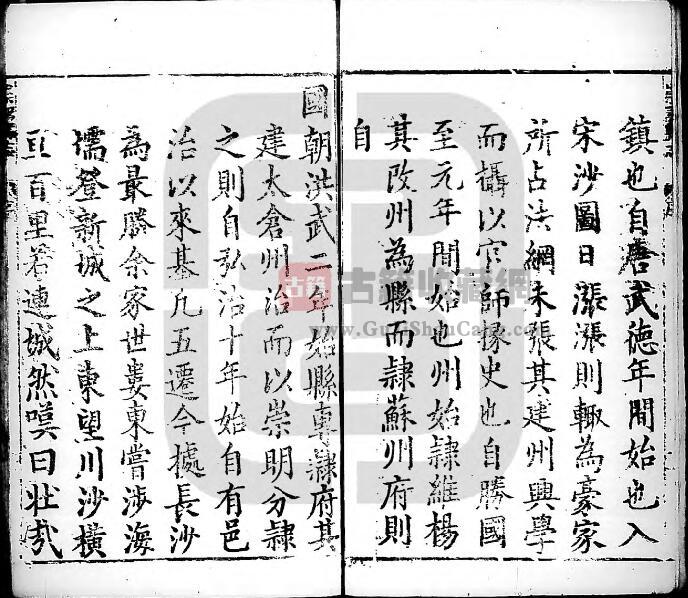 鎮也自唐武德年間始也入
宋沙圖日漲漲則輙為豪家
所占法網未張其建州興學
而攝以官師掾史也自勝國
至元年間始也州始隷維楊
其改州為縣而隷蘇州府則
自
國朝洪武二年始縣專隷府其
建太倉州治而以崇明分隷
之則自弘治十年始自有邑
治以來基凡五遷今據長沙
為最勝余家世婁東嘗渉海
壖登新城之上東望川沙橫
亘百里若連城然嘆曰壯哉
古籍
古籍收藏網
www.GuJiShuCang.com